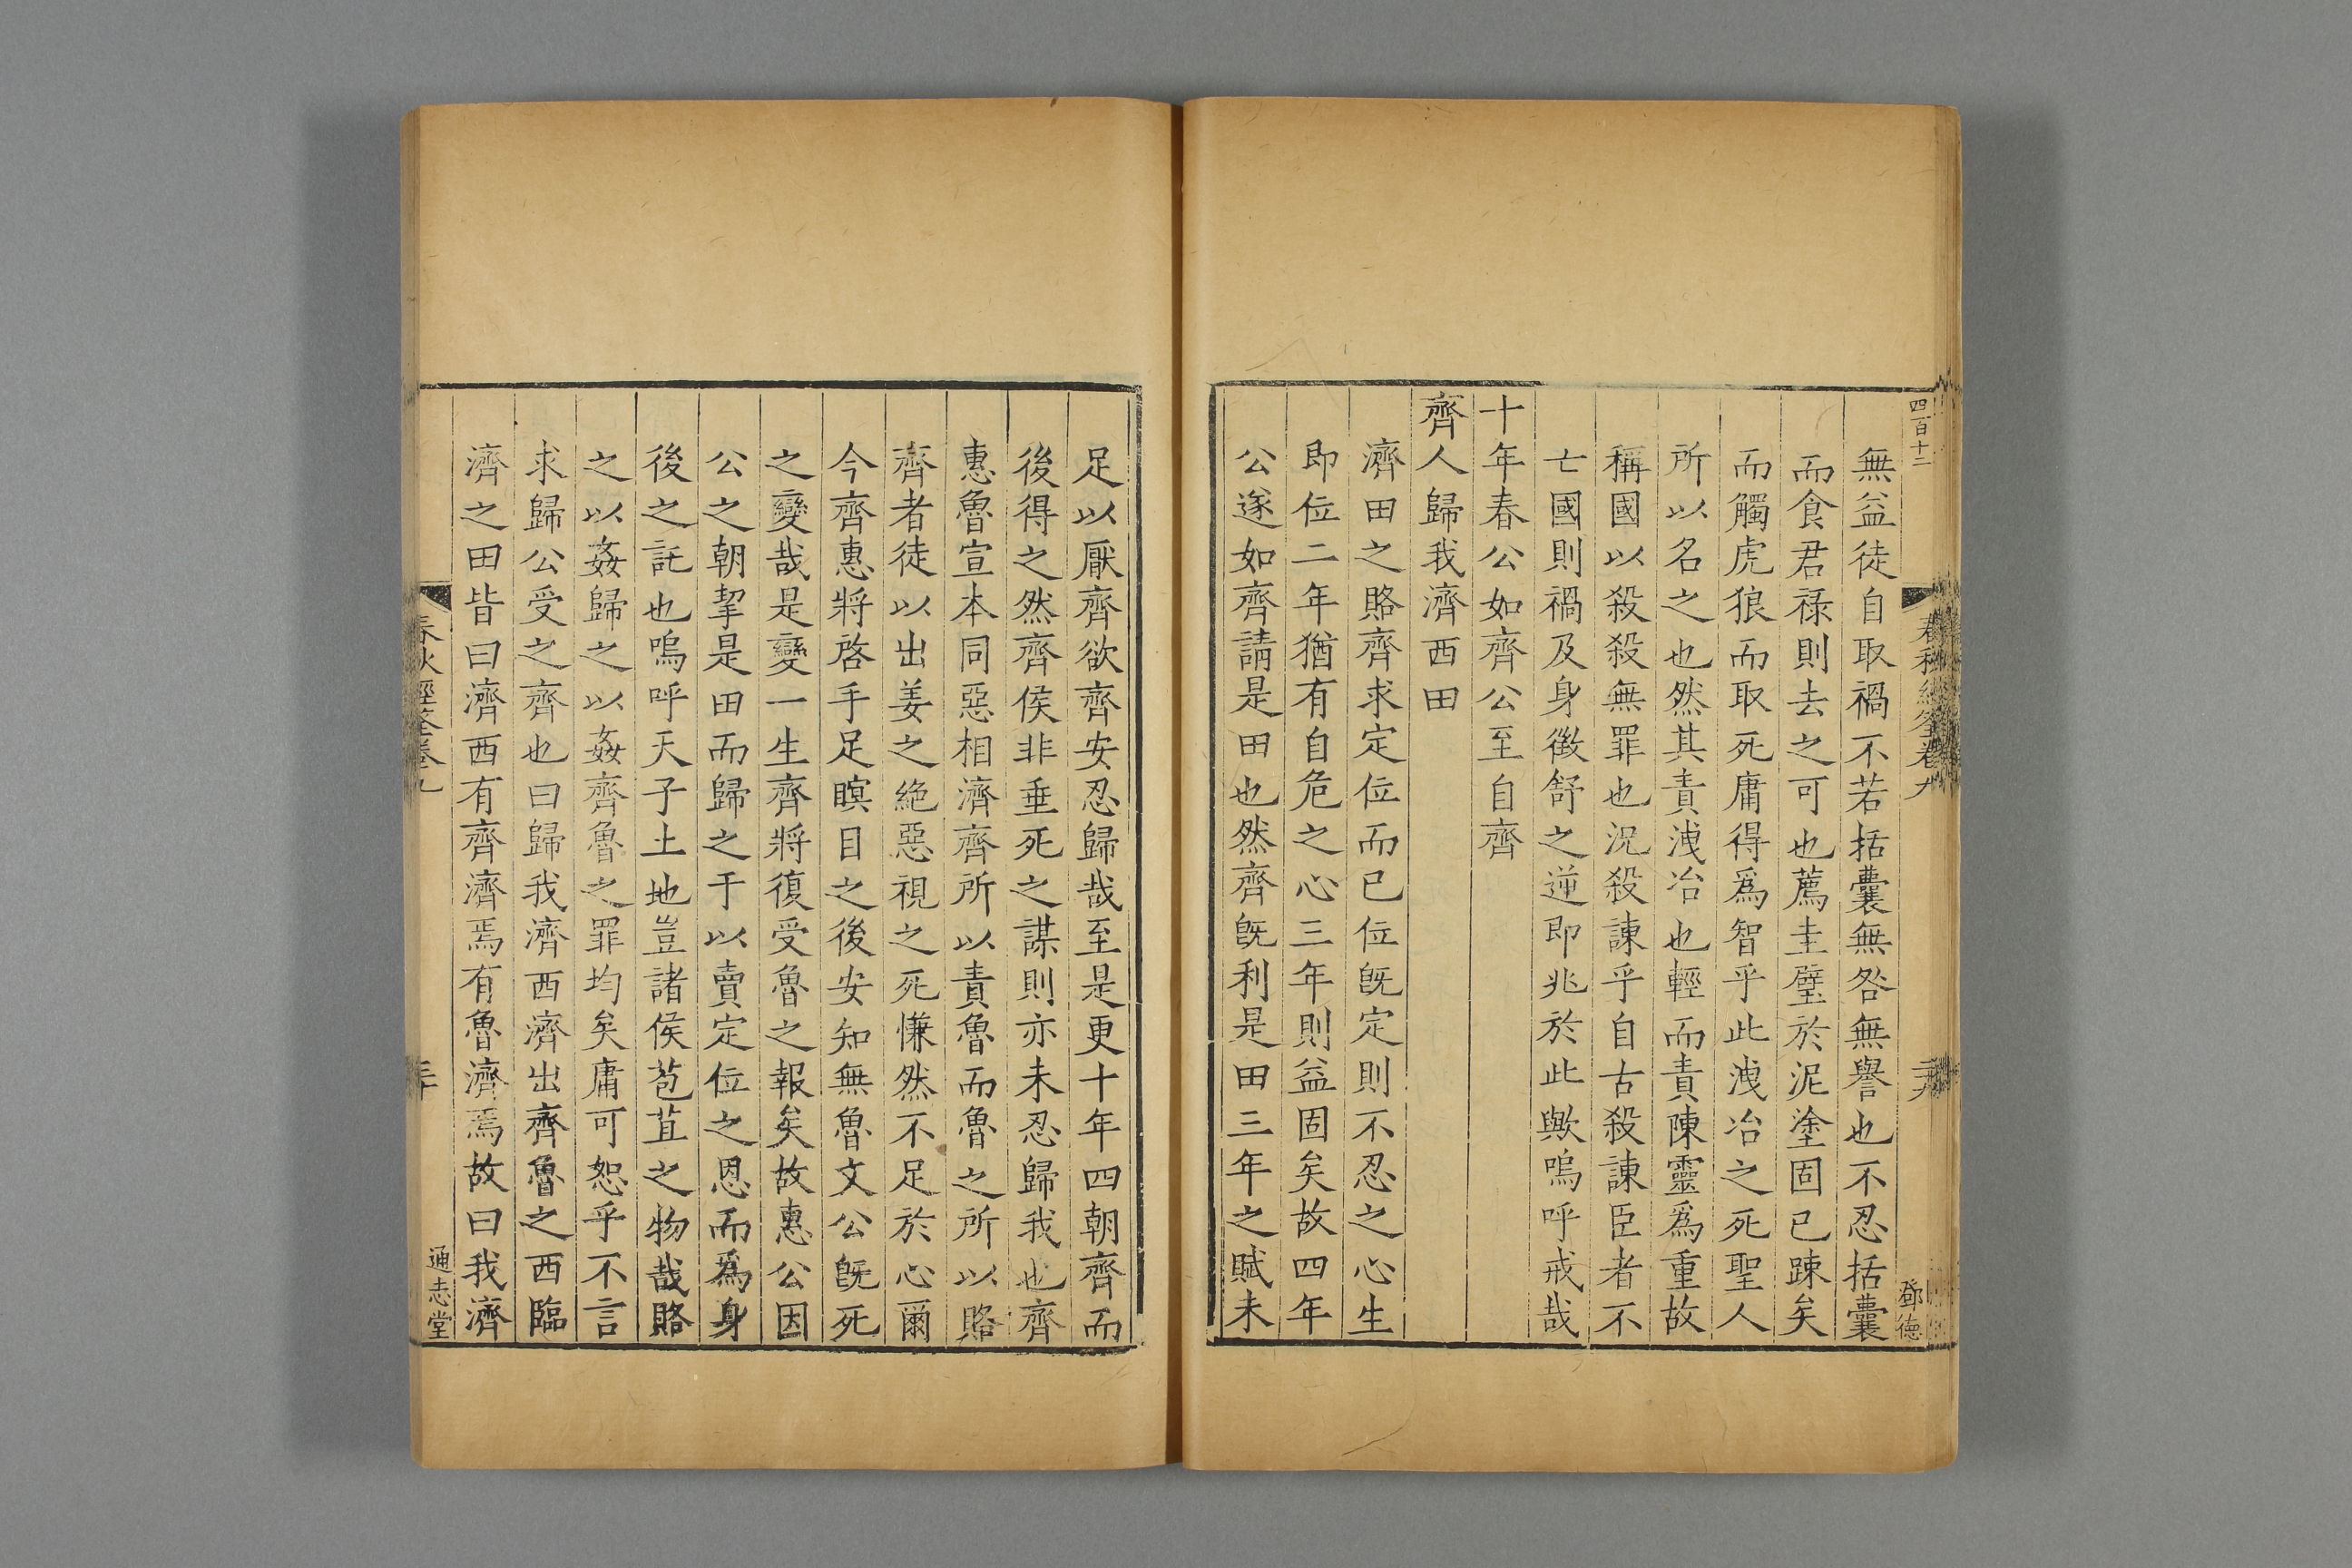 四百十二
春秋經筌卷九
二十九
鄧德
無益徒自取禍不若括囊無咎無譽也不忍括囊
而食君禄則去之可也薦圭璧於泥塗固已踈矣
而觸虎狼而取死庸得爲智乎此洩冶之死聖人
所以名之也然其責洩冶也輕而責陳靈爲重故
稱國以殺殺無罪也況殺諫乎自古殺諫臣者不
亡國則禍及身徵舒之逆即兆於此歟嗚呼戒哉
十年春公如齊公至自齊
齊人歸我濟西田
濟田之賂齊求定位而已位旣定則不忍之心生
即位二年猶有自危之心三年則益固矣故四年
公遂如齊請是田也然齊旣利是田三年之賦未
足以厭齊欲齊安忍歸哉至是更十年四朝齊而
後得之然齊侯非垂死之謀則亦未忍歸我也齊
惠魯宣本同惡相濟齊所以責魯而魯之所以賂
齊者徒以出姜之絶惡視之死慊然不足於心爾
今齊惠將啓手足瞑目之後安知無魯文公旣死
之變哉是變一生齊將復受魯之報矣故惠公因
公之朝挈是田而歸之于以賣定位之恩而爲身
後之託也嗚呼天子土地豈諸侯苞苴之物哉賂
之以姦歸之以姦齊魯之罪均矣庸可恕乎不言
求歸公受之齊也曰歸我濟西濟出齊魯之西臨
濟之田皆曰濟西有齊濟焉有魯濟焉故曰我濟
春秋經筌卷九
三十
通志堂